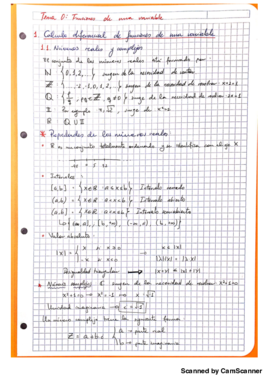 Tema 0: Funciones de una variable
1. Cálculo diferencial de funciones de una variable
1.1. Números reales y complejos
El conjunto de los números reales está formado por
N {0,1,2,...} surgen de la necesidad de contar
Z {...,-1,0,1,2,...} surgen de la necesidad de resolver x+2=1
Q {p/q, p,q∈Z, q≠0} surge de la necesidad de resolver 2x=1
I Por ejemplo π, √2, surge de x²=2
R Q U I
* Propiedades de los números reales
• R es un conjunto totalmente ordenado y se identifica con el eje X.
• Intervalos:
[a,b] = {x∈R a≤x≤b} Intervalo cerrado
(a,b) = {x∈R a<x<b} Intervalo abierto
• Valor absoluto:
|x| = { x si x≥0
-x si x<0
Desigualdad triangular → |x+y| ≤ |x|+|y|
* Números complejos C surgen de la necesidad de resolver x²+1=0
x²+1=0 → x²=-1 → x=√-1
Unidad imaginaria → i=√-1
Un número complejo tiene la siguiente forma:
Z = a+bi { a → parte real
b → parte imaginaria
Scanned by CamScanner